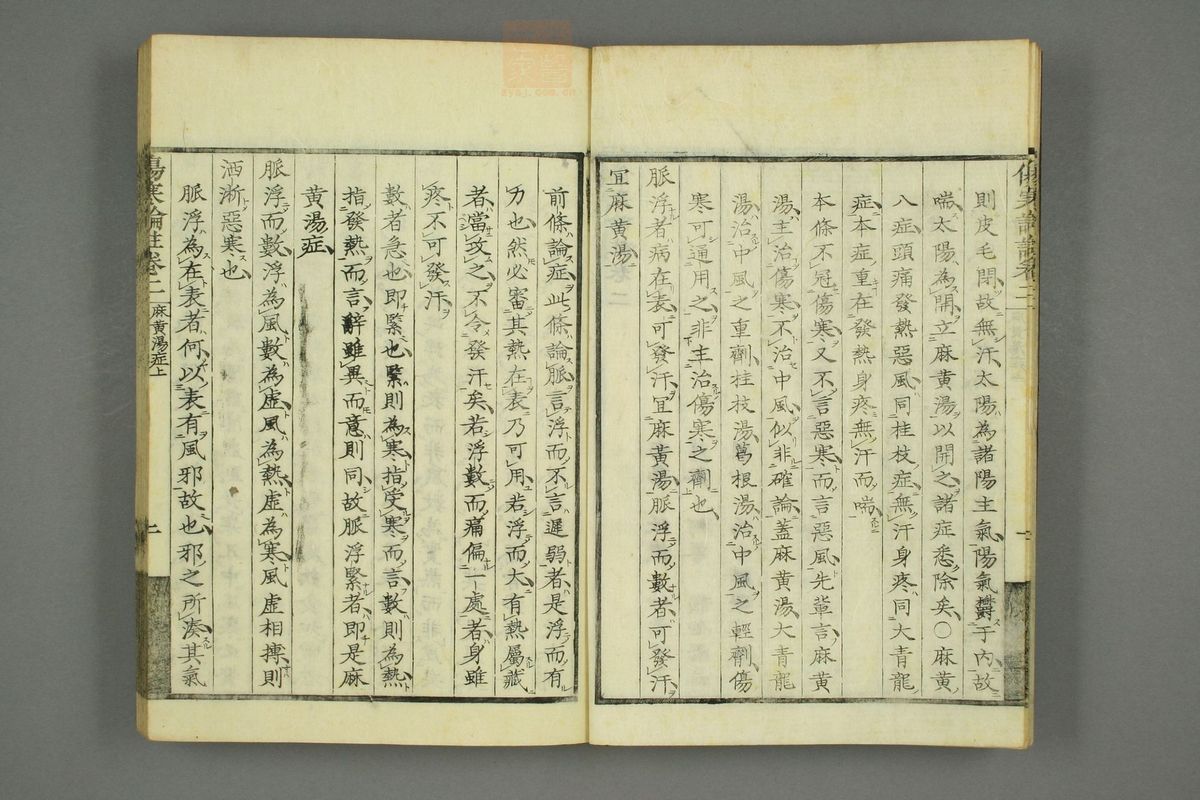 傷寒論註卷二
則皮毛閉故無汗太陽為諸陽主氣陽氣鬱于內故
喘太陽為開立麻黃湯以開之諸症悉除矣○麻黃
八症頭痛發熱惡風同桂枝症無汗身疼同大青龍
症本症重在發熱身疼無汗而喘
本條不冠傷寒又不言惡寒而言惡風先輩言麻黃
湯主治傷寒不治中風似非確論蓋麻黃湯大青龍
湯治中風之重劑桂枝湯葛根湯治中風之輕劑傷
寒可通用之非主治傷寒之劑也
脈浮者病在表可發汗宜麻黃湯脈浮而數者可發汗
宜麻黃湯
前條論症此條論脈言浮而不言遲弱者是浮而有
力也然必審其熱在表乃可用若浮而大有熱屬藏
者當攻之不令發汗矣若浮數而痛偏一處者身雖
疼不可發汗
數者急也即緊也緊則為寒指受寒而言數則為熱
指發熱而言辭雖異而意則同故脈浮緊者即是麻
黃湯症
脈浮而數浮為風數為虛風為熱虛為寒風虛相摶則
洒淅惡寒也
脈浮為在表者何以表有風邪故也邪之所湊其氣
傷寒論註卷二 麻黃湯症上 二